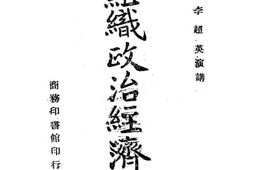 李超英演講
組織政治經濟
商務印書館印行